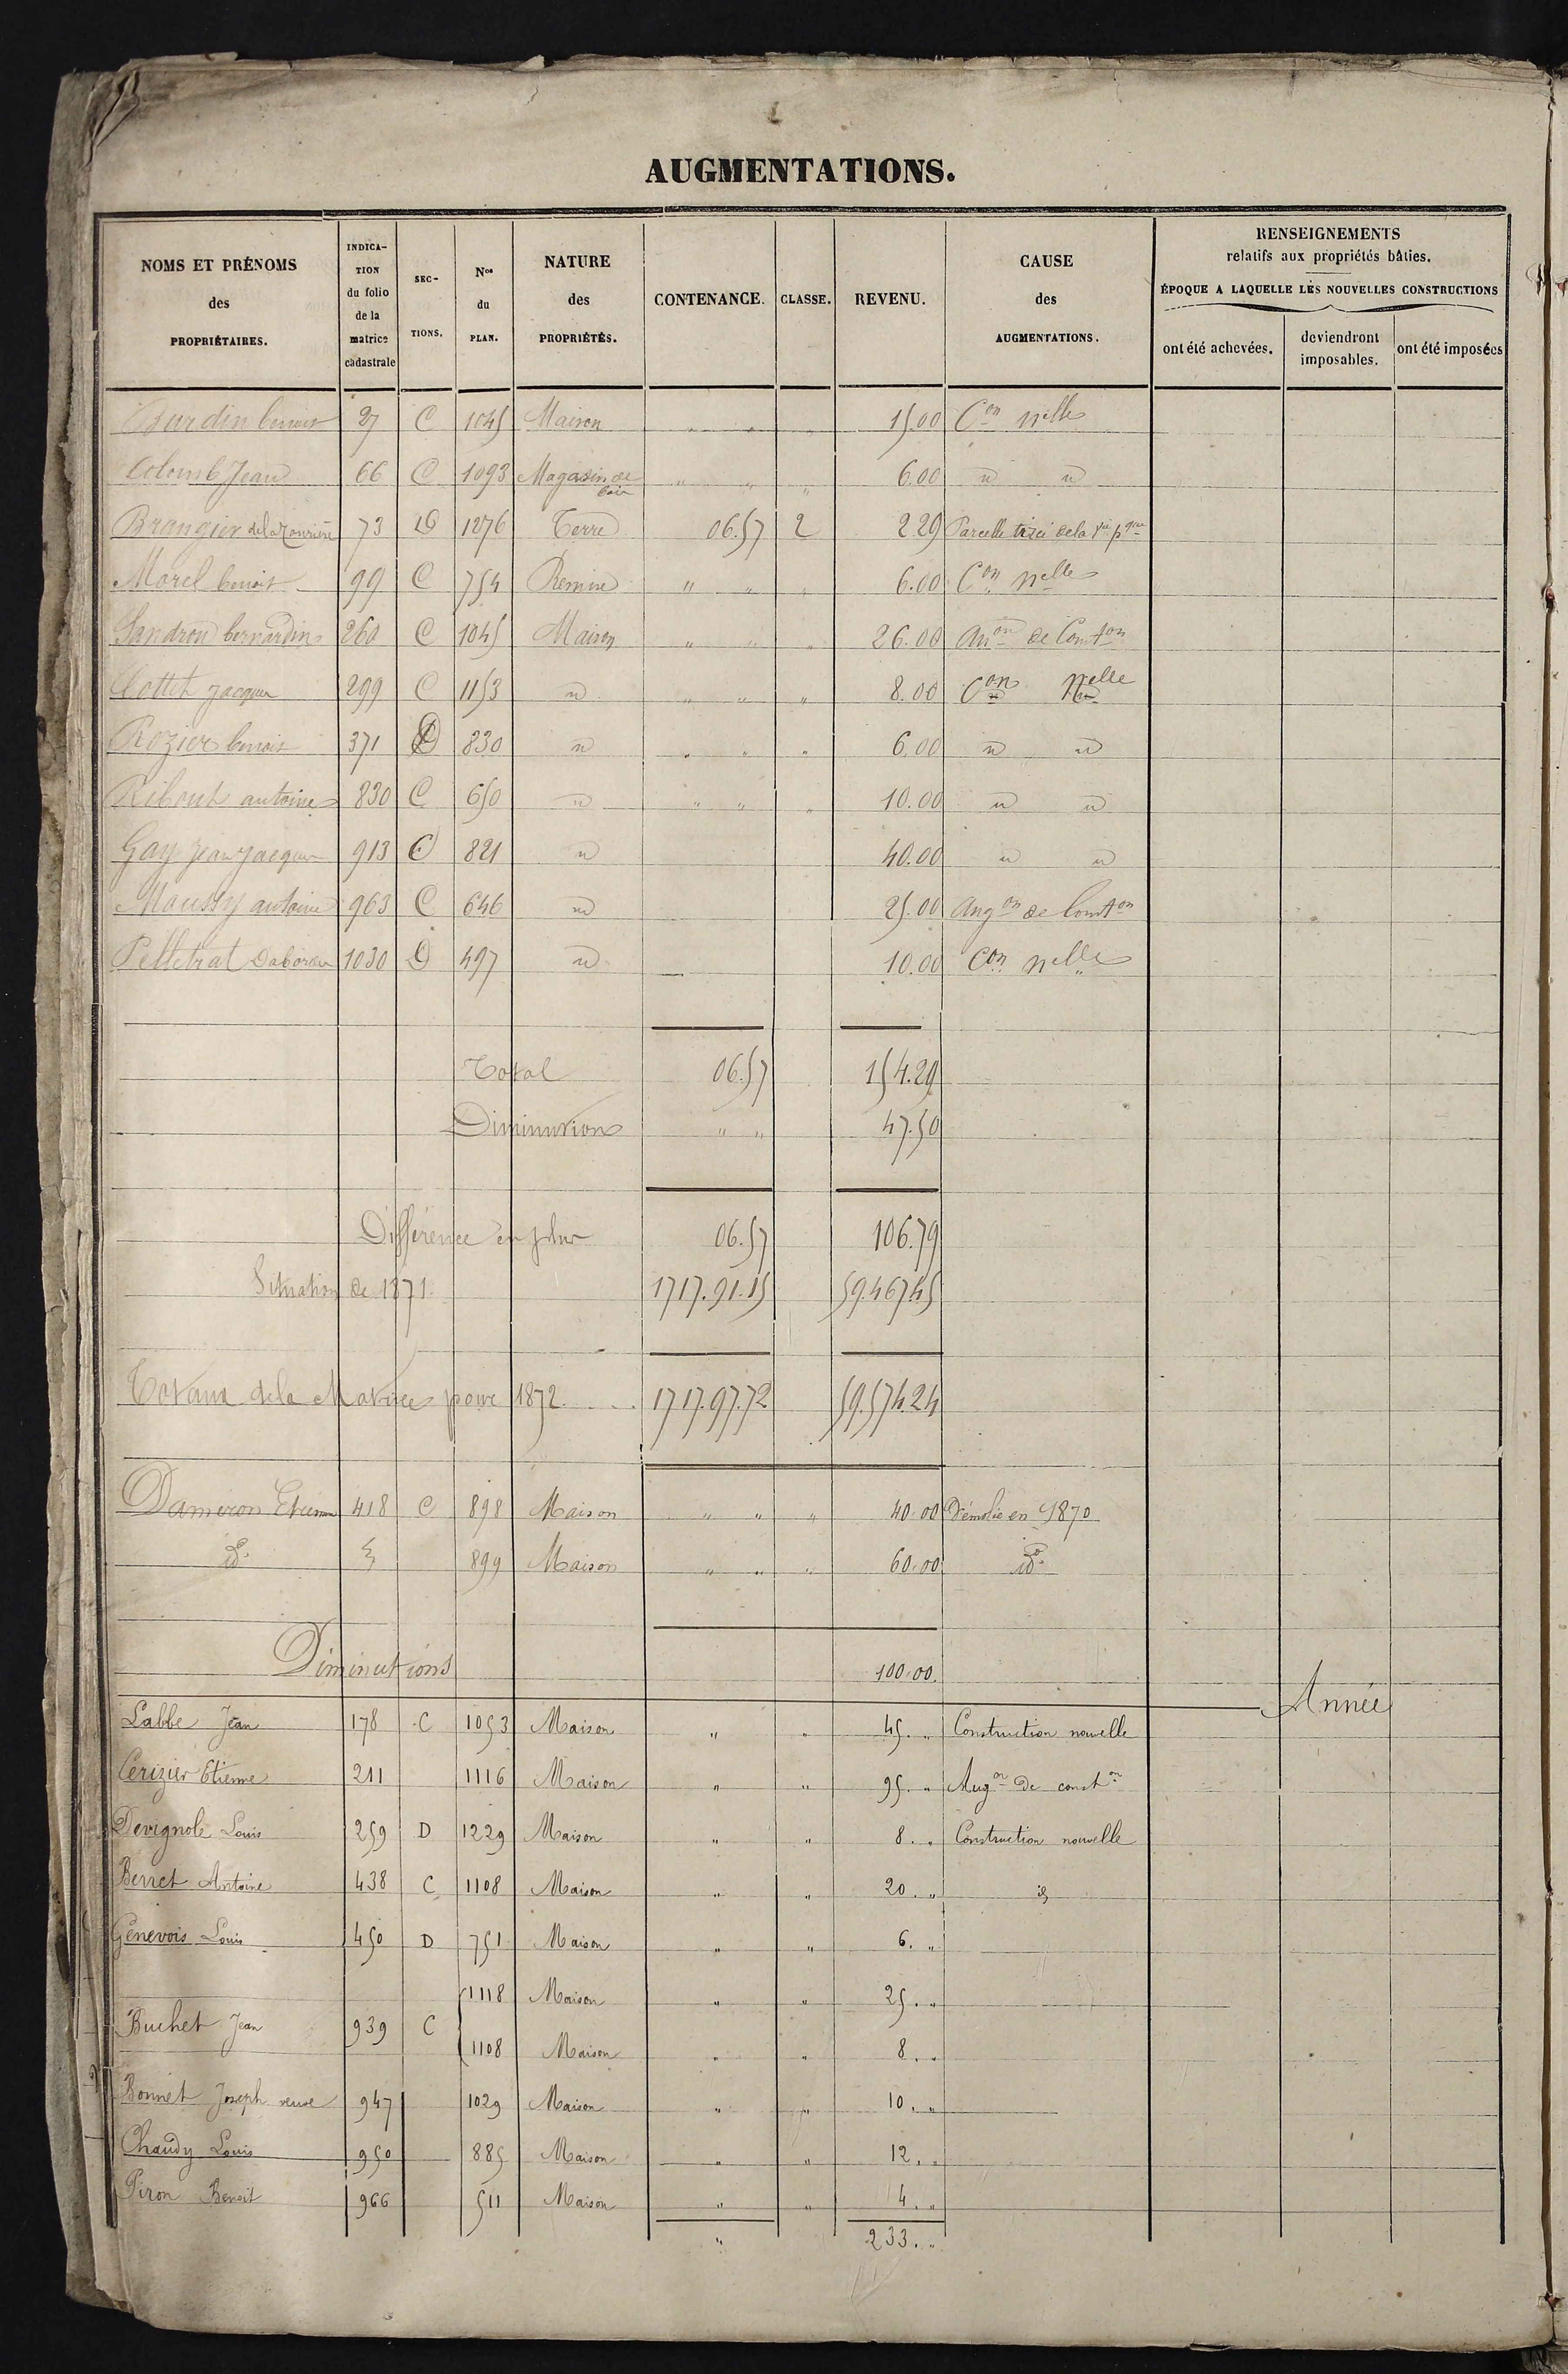 AUGMENTATIONS.
NOMS ET PRÉNOMS des PROPRIÉTAIRES. INDICATION du folio de la matrice cadastrale SECTIONS. Nos du PLAN. NATURE des PROPRIÉTÉS. CONTENANCE. CLASSE. REVENU. CAUSE des AUGMENTATIONS. RENSEIGNEMENTS relatifs aux propriétés bâties.
ÉPOQUE A LAQUELLE LES NOUVELLES CONSTRUCTIONS
ont été achevées. deviendront imposables. ont été imposées
Burdin benoit 27 C 1045 Maison " " " 15.00 Con nelle
Colomb Jean 66 C 1093 Magasin de bois " " " 6.00 id id
Brangier 73 D 1276 Terre 06.57 2 2.29 Parcelle de la
Morel benoit 99 C 754 Remise " " " 6.00 Con nelle
Sandron bernardin 260 C 1045 Maison " " " 26.00 de Conston
Cottet jacques 299 C 1153 id " " " 8.00 Con nelle
Rozier benoit 371 D 830 id " " " 6.00 id id
Ribout antoine 830 C 650 id " " " 10.00 id id
Gay jean jacques 913 C 821 id 40.00 id id
Moussy antoine 963 C 646 id 25.00 Augon de Conston
Pelletrat 1030 D 497 id 10.00 Con nelle
Total 06.57 154.29
Diminution " " 47.50
Différence en plus 06.57 106.79
Situation de 1871. 1717.91.15 59.467.45
Totaux de la Matrice pour 1872. 1717.97.72 59.574.24
Dameron Etienne 418 C 898 Maison " " " 40.00 Démolie en 1870
do 899 Maison " " " 60.00 ido
Diminutions 100.00.
Année
Labbe Jean 178 C 1053 Maison " " 45. " Construction nouvelle
Cerizier Etienne 211 1116 Maison " " 95. " Augon de conston
Devignole Louis 259 D 1229 Maison " " 8. " Construction nouvelle
Berret Antoine 438 C 1108 Maison " " 20. " id
Genevois Louis 450 D 751 Maison " " 6. "
1118 Maison " " 25. "
Buchet Jean 939 C
1108 Maison " " 8. "
Bonnet Joseph veuve 947 1029 Maison " " 10. "
Chaudy Louis 950 885 Maison " " 12. "
Piron Benoit 966 511 Maison " " 4. "
" 233. "